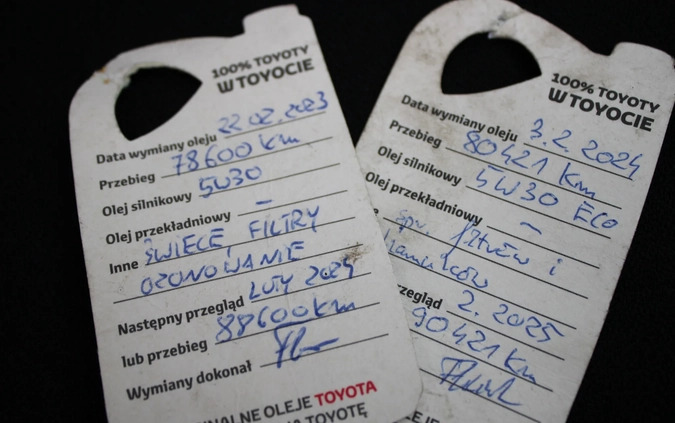 100% TOYOTY
W TOYOCIE
Data wymiany oleju 22.02.2023
Przebieg 78600 km
Olej silnikowy 5W30
Olej przekładniowy –
Inne ŚWIECE, FILTRY
OZONOWANIE
Następny przegląd LUTY 2024
lub przebieg 88600 km
Wymiany dokonał
NALNE OLEJE TOYOTA
TOYOTĘ
100% TOYOTY
W TOYOCIE
Data wymiany oleju 3.2.2024
Przebieg 80421 km
Olej silnikowy 5W30 ECO
Olej przekładniowy –
spr. filtrów i
hamulców
zegląd 2.2025
90421 km